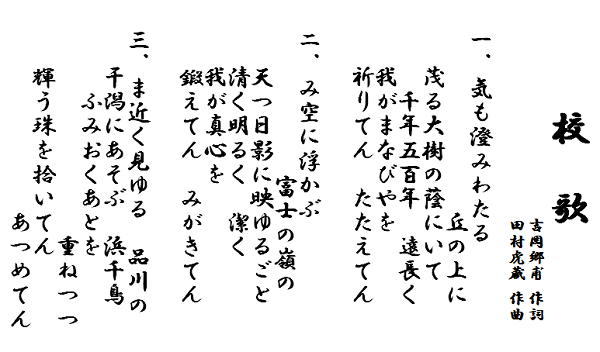 校歌
吉岡郷甫 作詞
田村虎蔵 作曲
一、気も澄みわたる
丘の上に
茂る大樹の蔭にいて
千年五百年 遠長く
我がまなびやを
祈りてん たたえてん
二、み空に浮かぶ
富士の嶺の
天つ日影に映ゆるごと
清く明るく 潔く
我が真心を
鍛えてん みがきてん
三、ま近く見ゆる 品川の
干潟にあそぶ 浜千鳥
ふみおくあとを
重ねつつ
輝う珠を拾いてん
あつめてん